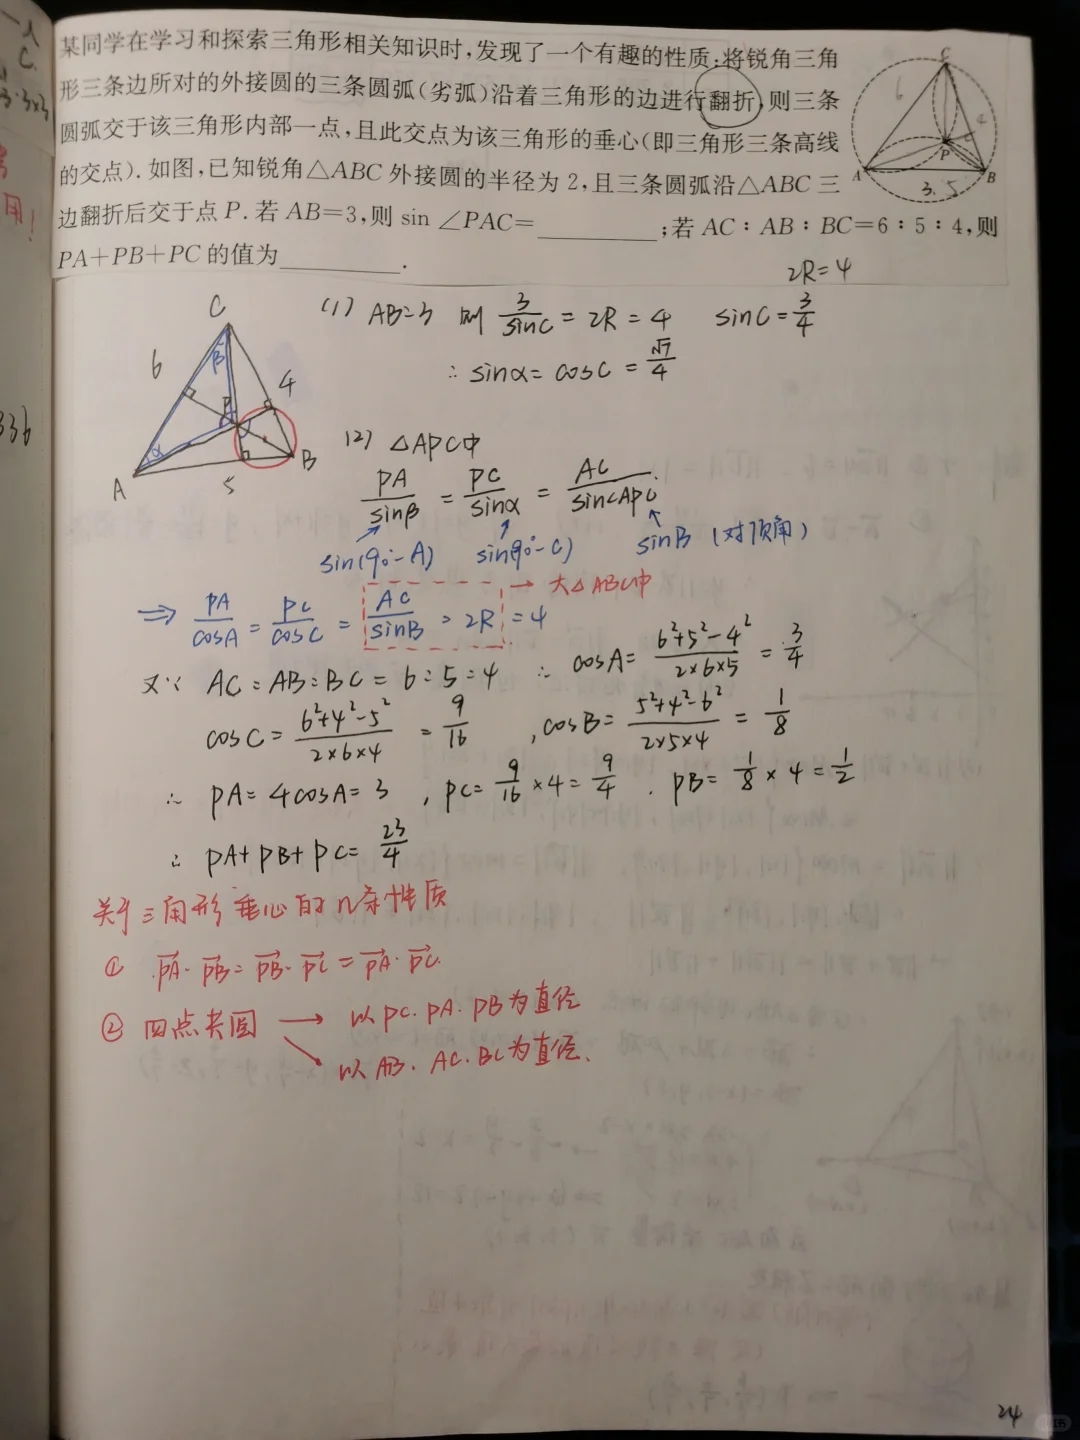 某同学在学习和探索三角形相关知识时,发现了一个有趣的性质:将锐角三角
形三条边所对的外接圆的三条圆弧(劣弧)沿着三角形的边进行翻折,则三条
圆弧交于该三角形内部一点,且此交点为该三角形的垂心(即三角形三条高线
的交点).如图,已知锐角△ABC外接圆的半径为2,且三条圆弧沿△ABC三
边翻折后交于点P.若AB=3,则sin∠PAC=________;若AC:AB:BC=6:5:4,则
PA+PB+PC的值为________.
C
6
4
P
A
B
3.5
2R=4
C
6
β
4
P
α
A
5
B
(1) AB=3 则 3/sinC = 2R = 4 sinC = 3/4
∴ sinα = cosC = √7/4
(2) △APC中
PA/sinβ = PC/sinα = AC/sin∠APC
sin(90°-A) sin(90°-C) sinB (对顶角)
⇒ PA/cosA = PC/cosC = AC/sinB = 2R = 4 → 大△ABC中
又∵ AC:AB:BC = 6:5:4 ∴ cosA = (6²+5²-4²)/(2×6×5) = 3/4
cosC = (6²+4²-5²)/(2×6×4) = 9/16 , cosB = (5²+4²-6²)/(2×5×4) = 1/8
∴ PA = 4cosA = 3 , PC = 9/16 × 4 = 9/4 . PB = 1/8 × 4 = 1/2
∴ PA+PB+PC = 23/4
关于三角形垂心的几条性质
① PA·PB = PB·PC = PA·PC.
② 四点共圆 → 以PC.PA.PB为直径
↘ 以AB.AC.BC为直径.
336
用!
24